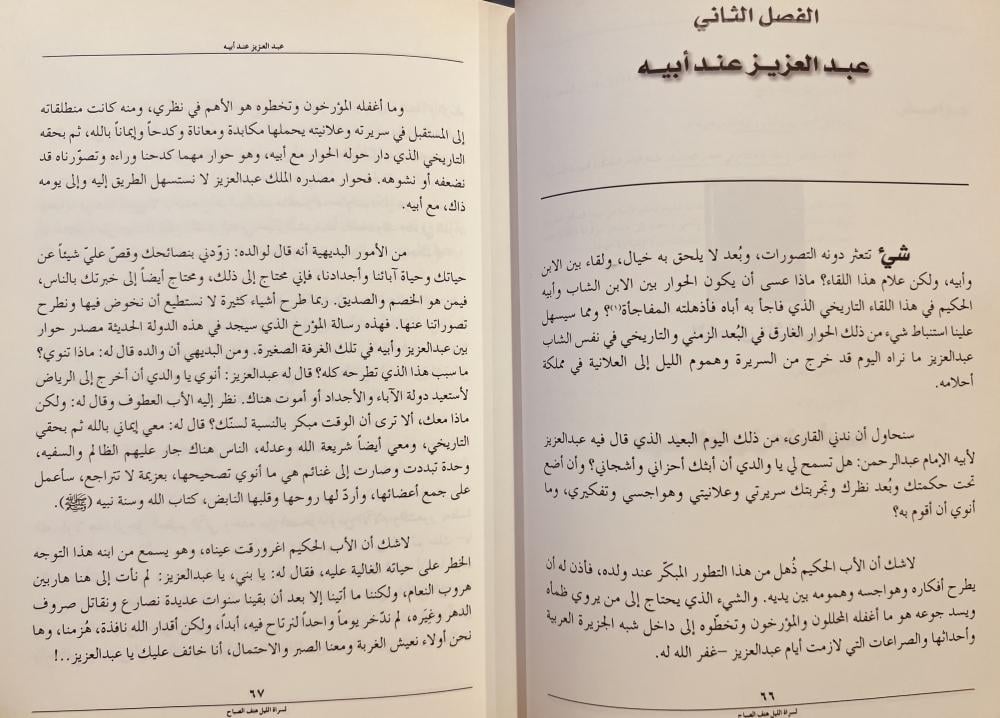 الفصل الثاني
عبد العزيز عند أبيه
شيءٌ تتعثر دونه التصورات، وبُعد لا يلحق به خيال، ولقاء بين الابن
وأبيه، ولكن علام هذا اللقاء؟ ماذا عسى أن يكون الحوار بين الابن الشاب وأبيه
الحكيم في هذا اللقاء التاريخي الذي فاجأ به أباه فأذهلته المفاجأة(١)؟ ومما سيسهل
علينا استنباط شيء من ذلك الحوار الغارق في البُعد الزمني والتاريخي في نفس الشاب
عبدالعزيز ما نراه اليوم قد خرج من السريرة وهموم الليل إلى العلانية في مملكة
أحلامه.
سنحاول أن ندني القارىء من ذلك اليوم البعيد الذي قال فيه عبدالعزيز
لأبيه الإمام عبدالرحمن: هل تسمح لي يا والدي أن أبثك أحزاني وأشجاني؟ وأن أضع
تحت حكمتك وبُعد نظرك وتجربتك سريرتي وعلانيتي وهواجسي وتفكيري، وما
أنوي أن أقوم به؟
لاشك أن الأب الحكيم ذُهل من هذا التطور المبكّر عند ولده، فأذن له أن
يطرح أفكاره وهواجسه وهمومه بين يديه. والشيء الذي يحتاج إلى من يروي ظمأه
ويسد جوعه هو ما أغفله المحللون والمؤرخون وتخطّوه إلى داخل شبه الجزيرة العربية
وأحداثها والصراعات التي لازمت أيام عبدالعزيز –غفر الله له.
٦٦
لسراة الليل هتف الصباح
عبد العزيز عند أبيه
وما أغفله المؤرخون وتخطوه هو الأهم في نظري، ومنه كانت منطلقاته
إلى المستقبل في سريرته وعلانيته يحملها مكابدة ومعاناة وكدحاً وإيماناً بالله، ثم بحقه
التاريخي الذي دار حوله الحوار مع أبيه، وهو حوار مهما كدحنا وراءه وتصوّرناه قد
نضعفه أو نشوهه. فحوار مصدره الملك عبدالعزيز لا نستسهل الطريق إليه وإلى يومه
ذاك، مع أبيه.
من الأمور البديهية أنه قال لوالده: زوّدني بنصائحك وقصّ عليّ شيئاً عن
حياتك وحياة آبائنا وأجدادنا، فإني محتاج إلى ذلك، ومحتاج أيضاً إلى خبرتك بالناس،
فيمن هو الخصم والصديق. ربما طرح أشياء كثيرة لا نستطيع أن نخوض فيها ونطرح
تصوراتنا عنها. فهذه رسالة المؤرخ الذي سيجد في هذه الدولة الحديثة مصدر حوار
بين عبدالعزيز وأبيه في تلك الغرفة الصغيرة. ومن البديهي أن والده قال له: ماذا تنوي؟
ما سبب هذا الذي تطرحه كله؟ قال له عبدالعزيز: أنوي يا والدي أن أخرج إلى الرياض
لأستعيد دولة الآباء والأجداد أو أموت هناك. نظر إليه الأب العطوف وقال له: ولكن
ماذا معك، ألا ترى أن الوقت مبكر بالنسبة لسنّك؟ قال له: معي إيماني بالله ثم بحقي
التاريخي، ومعي أيضاً شريعة الله وعدله، الناس هناك جار عليهم الظالم والسفيه،
وحدة تبددت وصارت إلى غنائم هي ما أنوي تصحيحها، بعزيمة لا تتراجع، سأعمل
على جمع أعضائها، وأردّ لها روحها وقلبها النابض، كتاب الله وسنة نبيه (ﷺ).
لاشك أن الأب الحكيم اغرورقت عيناه، وهو يسمع من ابنه هذا التوجه
الخطر على حياته الغالية عليه، فقال له: يا بني، يا عبدالعزيز: لم نأت إلى هنا هاربين
هروب النعام، ولكننا ما أتينا إلا بعد أن بقينا سنوات عديدة نصارع ونقاتل صروف
الدهر وغِيَره، لم ندّخر يوماً واحداً لنرتاح فيه، أبداً، ولكن أقدار الله نافذة، هُزمنا، وها
نحن أولاء نعيش الغربة ومعنا الصبر والاحتمال، أنا خائف عليك يا عبدالعزيز..!
٦٧
لسراة الليل هتف الصباح